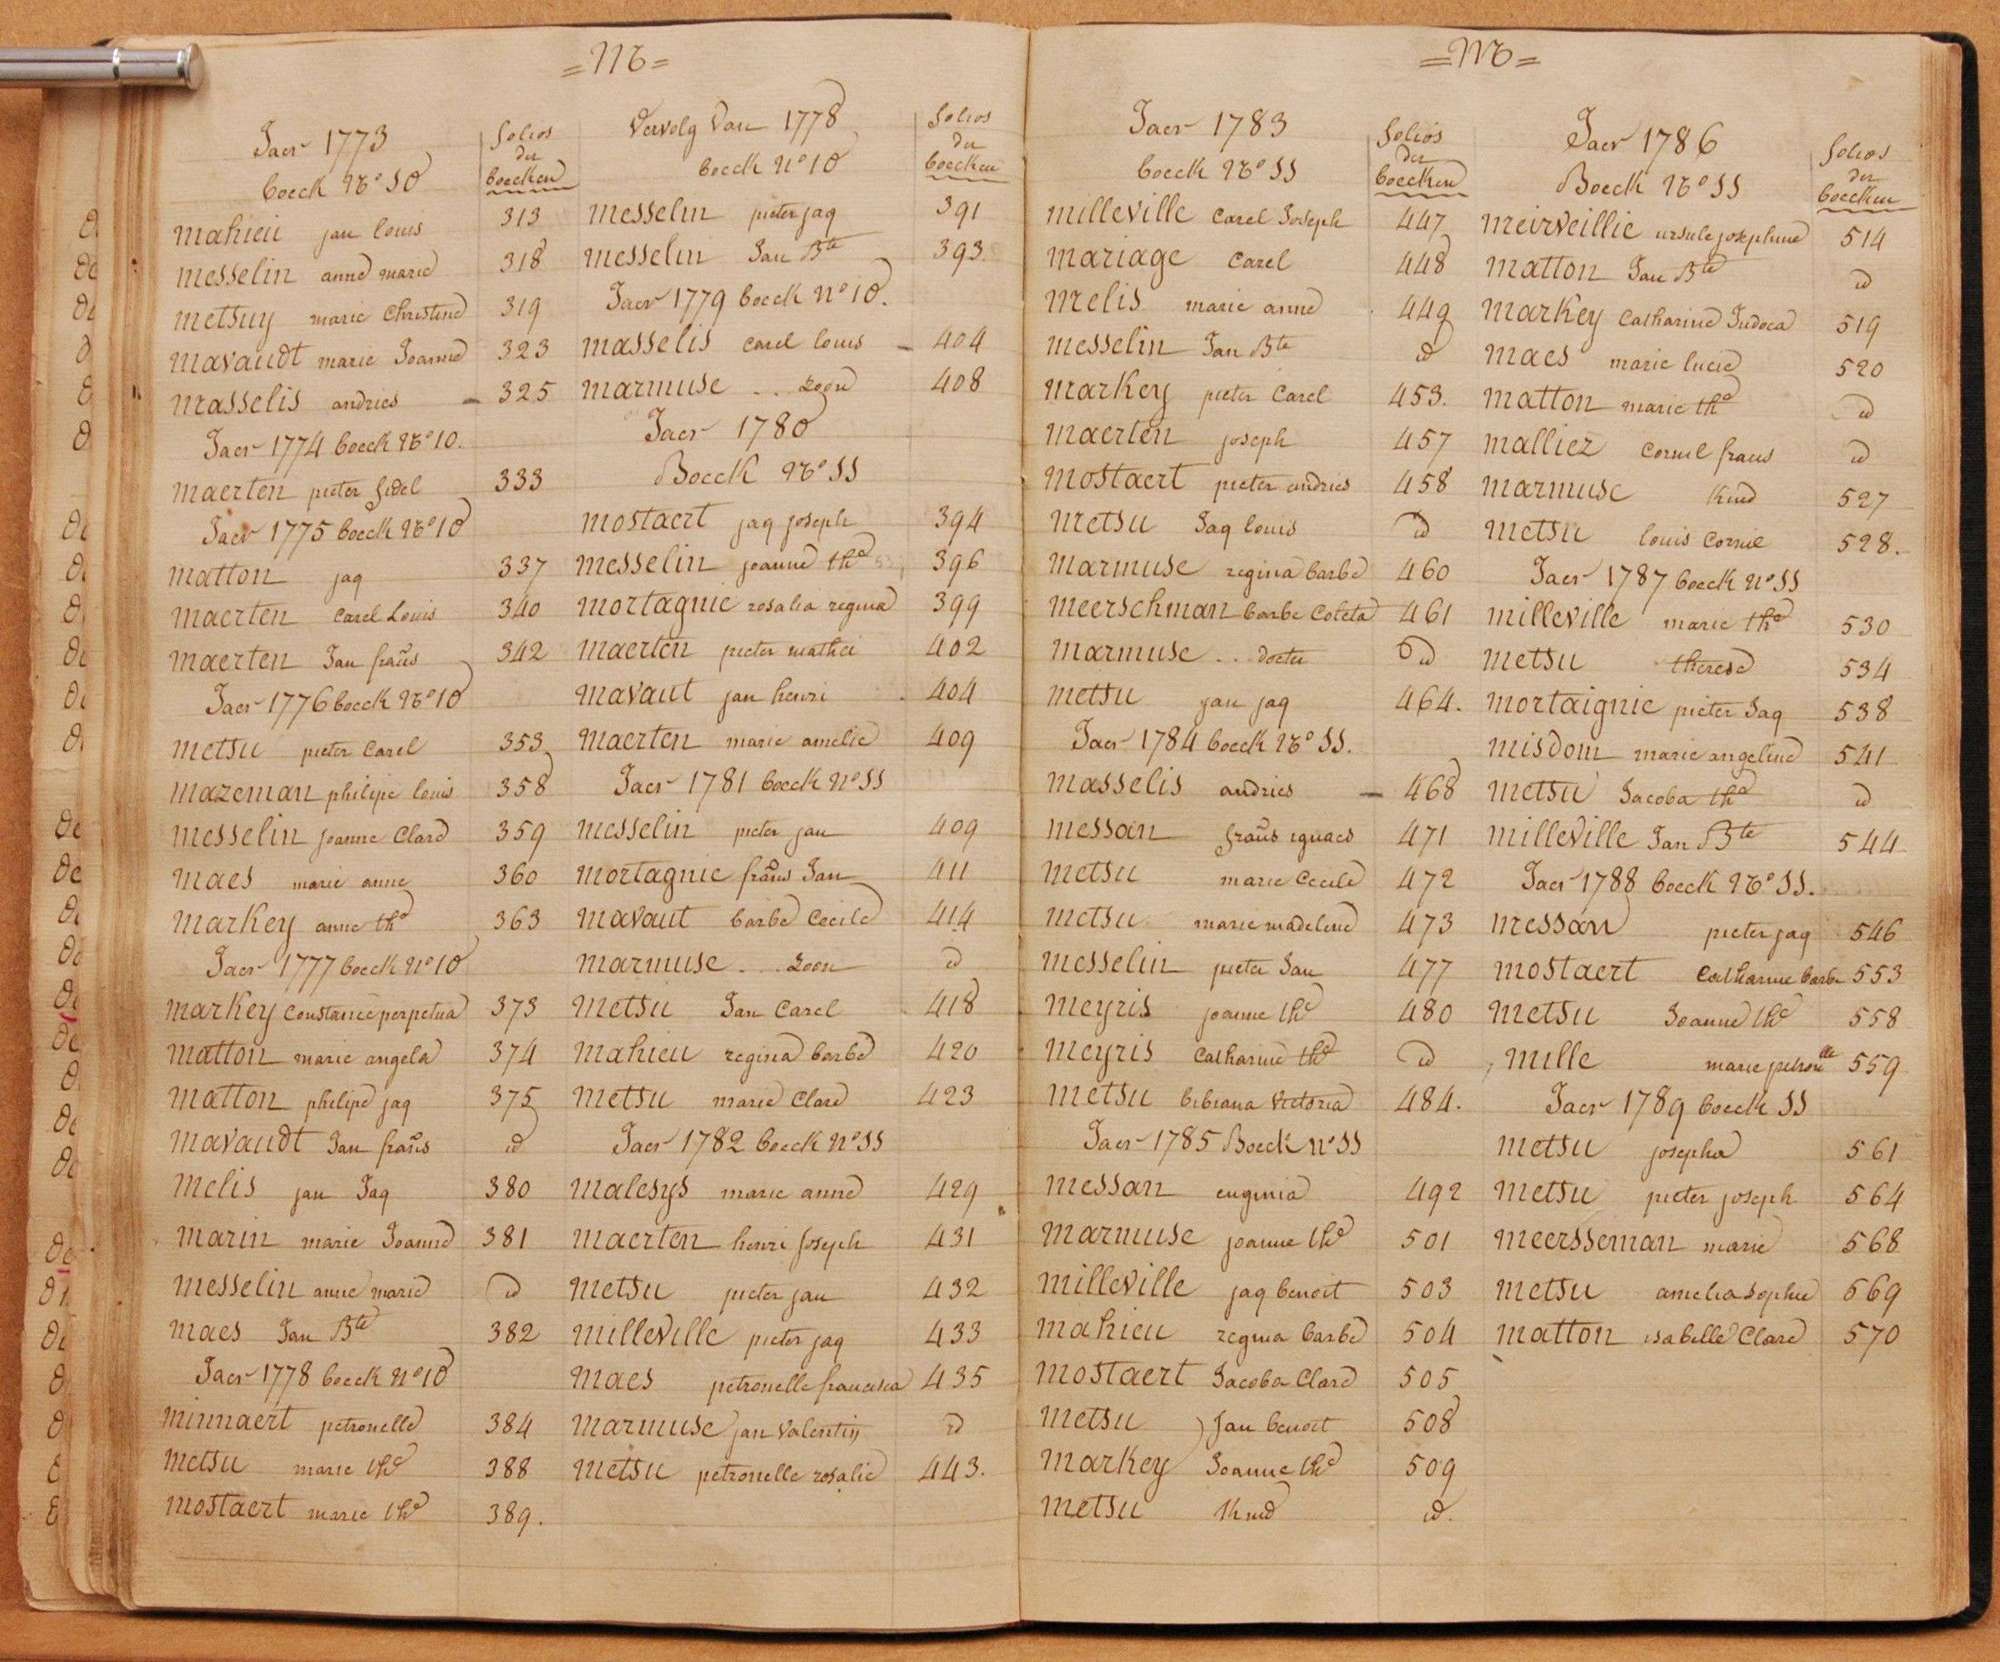 = M =
Jaer 1773
boeck No 10
folios
der
boecken
mahieu jan louis 313
messelin anne marie 318
metsuy marie Christine 319
mavaudt marie Joanne 323
masselis andries 325
Jaer 1774 boeck No 10.
maerten pieter fidel 333
Jaer 1775 boeck No 10
matton jaq 337
maerten Carel Louis 340
maerten Jan frañs 342
Jaer 1776 boeck No 10
metsu pieter Carel 353
mazeman philipe louis 358
messelin joanne Clare 359
maes marie anne 360
markey anne the 363
Jaer 1777 boeck No 10
markey Constance perpetua 373
matton marie angela 374
matton philipe jaq 375
mavaudt Jan frañs id
melis jan Jaq 380
marin marie Joanne 381
messelin anne marie id
maes Jan Bte 382
Jaer 1778 boeck No 10
minnaert petronelle 384
metsu marie the 388
mostaert marie the 389.
Vervolg Van 1778
boeck No 10
folios
der
boecken
messelin pieter jaq 391
messelin Jan Bte 393
Jaer 1779 boeck No 10.
masselis carel louis 404
marmuse .. zoon 408
Jaer 1780
Boeck No 11
mostaert jaq joseph 394
messelin joanne the 396
mortagnie rosalia regina 399
maerten pieter mathei 402
mavaut jan henri 404
maerten marie amelie 409
Jaer 1781 boeck No 11
messelin pieter jan 409
mortagnie frañs Jan 411
mavaut barbe Cecile 414
marmuse ... zoon id
metsu Jan Carel 418
mahieu regina barbe 420
metsu marie Clare 423
Jaer 1782 boeck No 11
malesys marie anne 429
maerten henri joseph 431
metsu pieter jan 432
milleville pieter jaq 433
maes petronelle francisca 435
marmuse jan Valentin id
metsu petronelle rosalie 443.
= M =
Jaer 1783
boeck No 11
folios
der
boecken
milleville Carel Joseph 447
mariage Carel 448
melis marie anne 449
messelin Jan Bte id
markey pieter Carel 453.
maerten joseph 457
mostaert pieter andries 458
metsu Jaq louis id
marmuse regina barbe 460
meerschman barbe Coleta 461
marmuse .. docter id
metsu jan jaq 464.
Jaer 1784 boeck No 11.
masselis andries 468
messan frañs ignaes 471
metsu marie Cecile 472
metsu marie madelene 473
messelin pieter Jan 477
meyris joanne the 480
meyris Catharine the id
metsu bibiana Victoria 484.
Jaer 1785 Boeck No 11
messan euginia 492
marmuse joanne the 501
milleville jaq benoit 503
mahieu regina barbe 504
mostaert Jacoba Clare 505
metsu Jan benoit 508
markey Joanne the 509
metsu Kind id.
Jaer 1786
Boeck No 11
folios
der
boecken
meirveillie ursule josephine 514
matton Jan Bte id
markey Catharine Judoca 519
maes marie lucie 520
matton marie the id
malliez Cornil frans id
marmuse Kind 527
metsu louis Cornie 528.
Jaer 1787 boeck No 11
milleville marie the 530
metsu therese 534
mortaignie pieter Jaq 538
misdom marie angeline 541
metsu Jacoba the id
milleville Jan Bte 544
Jaer 1788 boeck No 11.
messan pieter jaq 546
mostaert Catharine barbe 553
metsu Joanne the 558
mille marie petronlle 559
Jaer 1789 boeck 11
metsu josepha 561
metsu pieter joseph 564
meersseman marie 568
metsu amelia Sophie 569
matton isabelle Clare 570